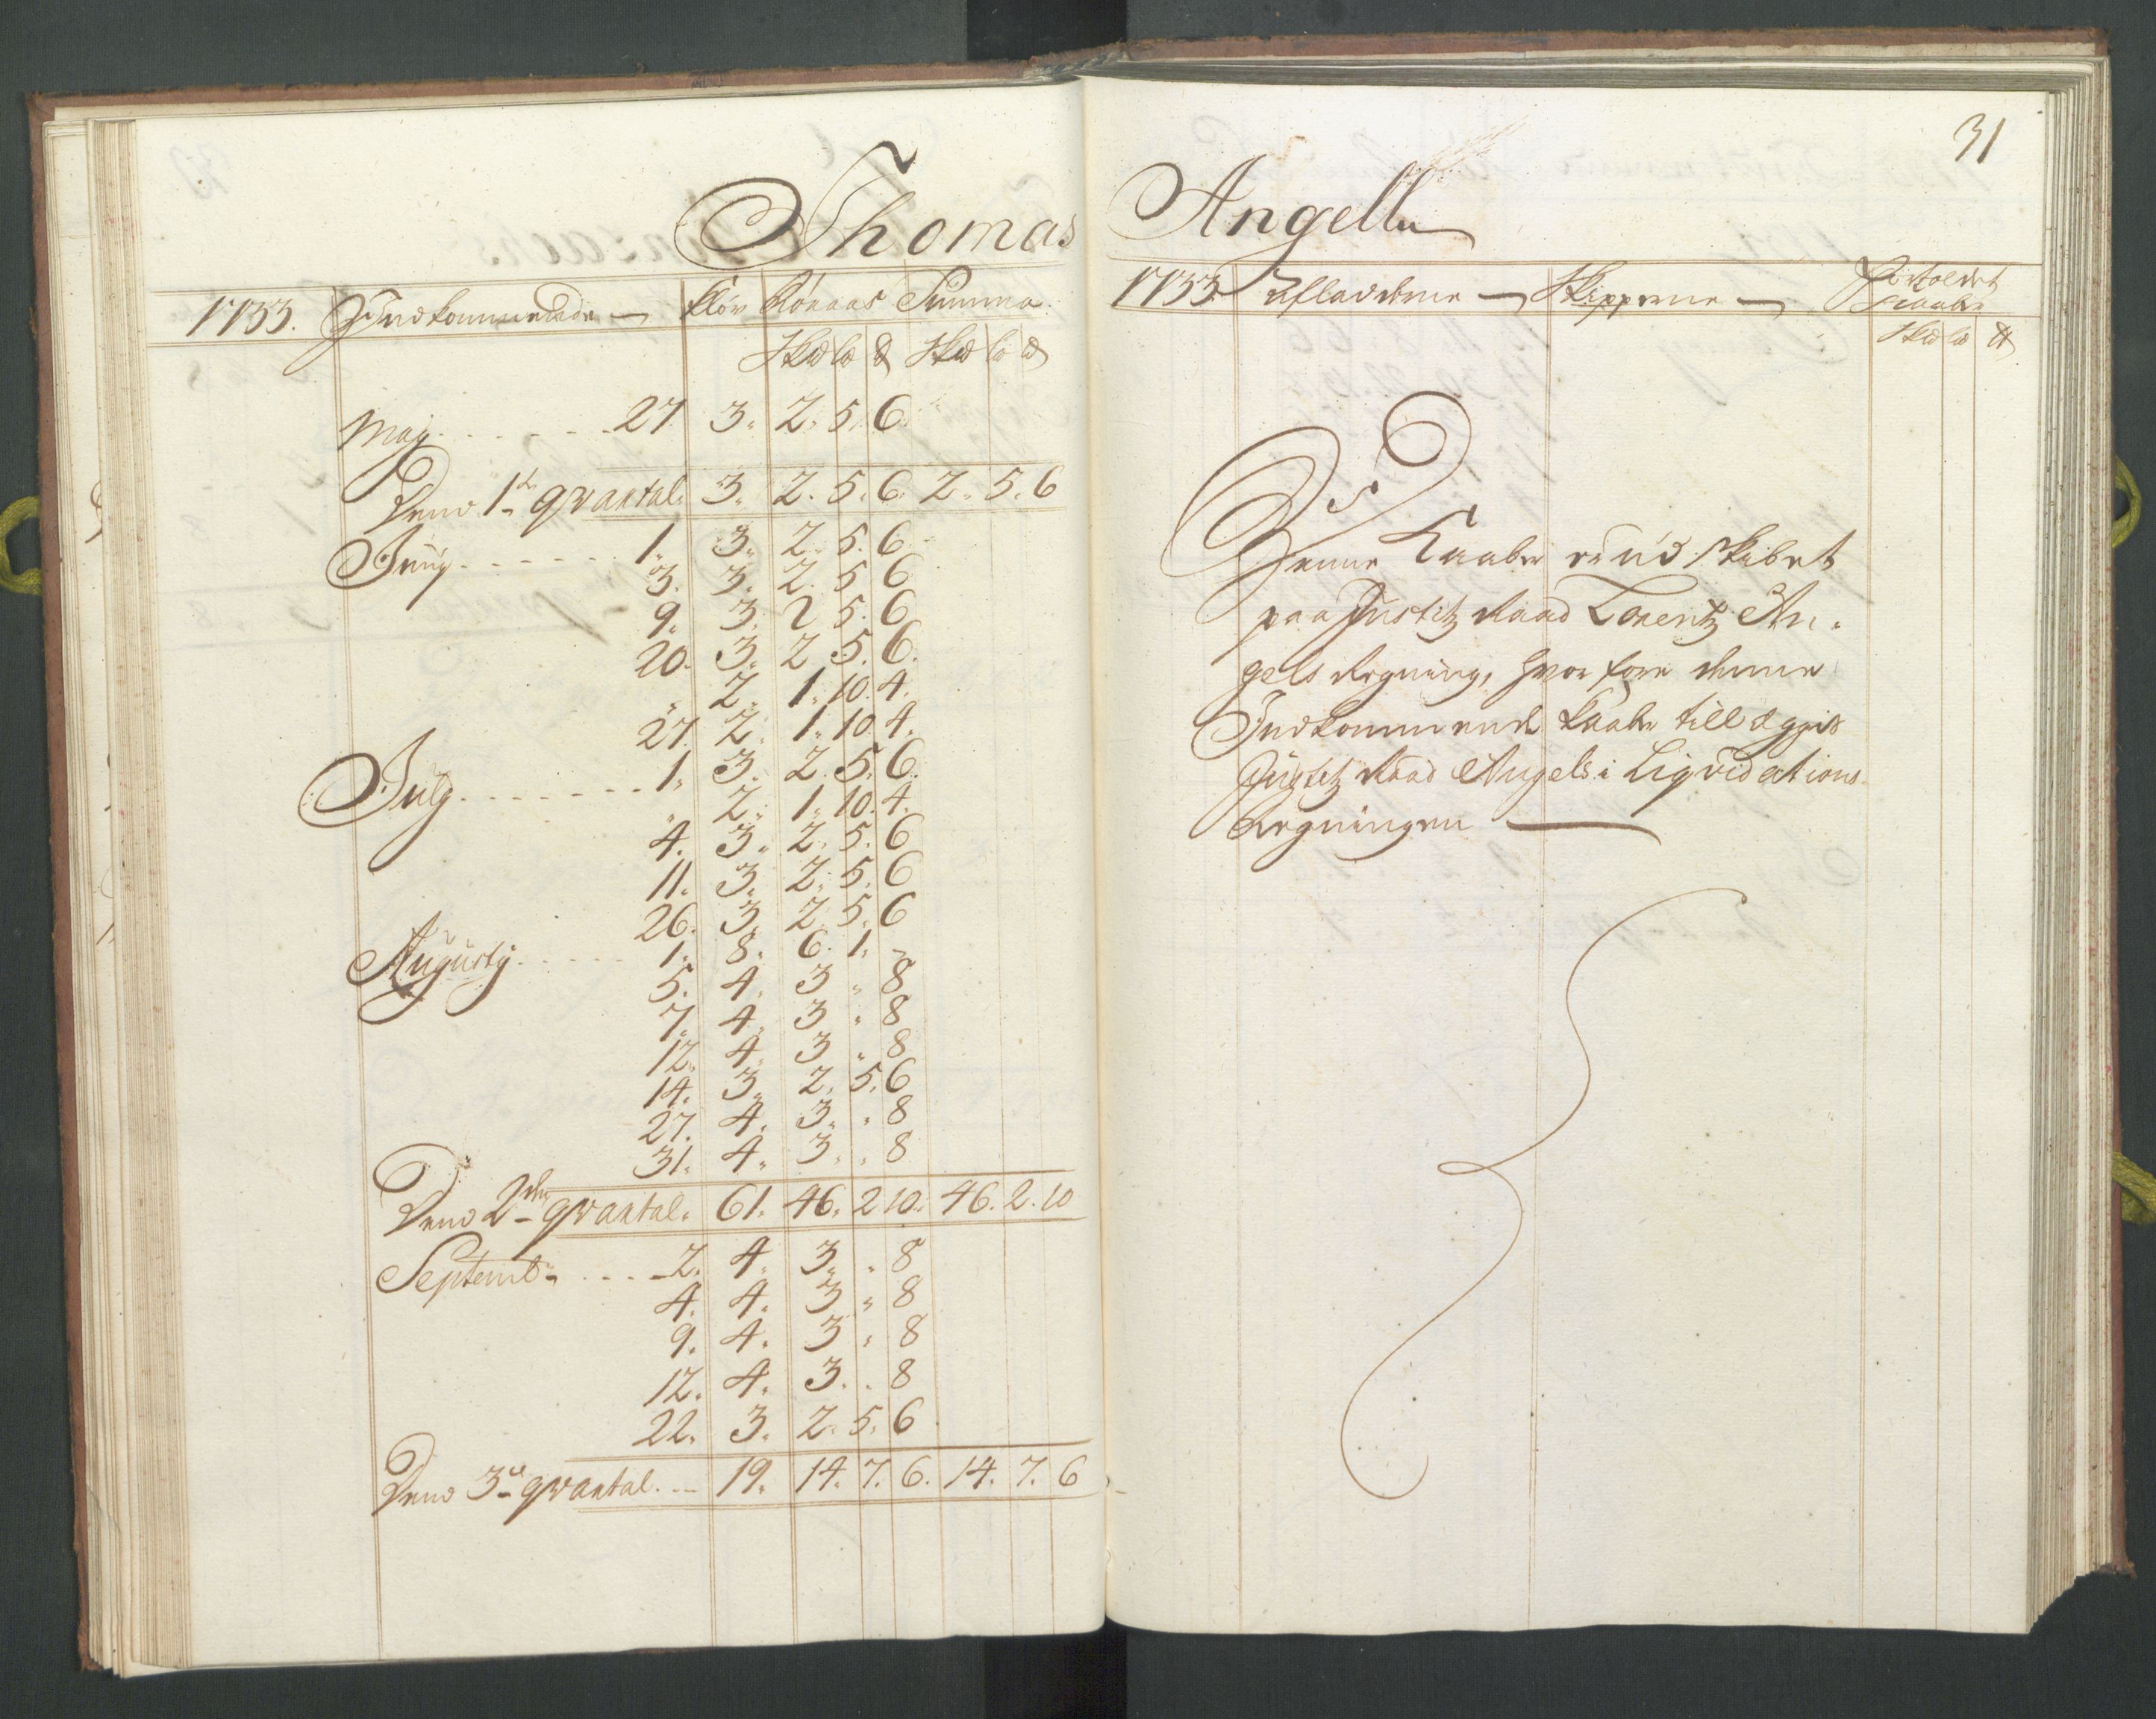 31
Thomas Angell
1733. Indkommende — Kløv Røraas Summa
Sk℔ L℔ ℔ Sk℔ L℔ ℔
May . . . . . . 27. 3. 2. 5. 6.
Dend 1te qvartal. 3. 2. 5. 6. 2. 5. 6
Juny . . . . . 1. 3. 2. 5. 6
3. 3. 2. 5 6
9. 3. 2 5. 6
20. 3. 2 5. 6.
" 2. 1. 10. 4.
27. 2. 1. 10. 4.
July . . . . . . . 1. 3. 2. 5. 6.
" 2. 1. 10. 4.
4. 3. 2. 5. 6
11. 3. 2. 5. 6
26. 3. 2. 5. 6
Augusty . . . . . 1. 8. 6. 1. -
5. 4. 3 " 8
7. 4. 3 " 8
12. 4. 3 " 8
14. 3. 2. 5. 6
27. 4. 3. " 8
31. 4. 3. " 8
Dend 2den qvartal. 61. 46. 2 10. 46. 2. 10
Septemb. . . . . 2. 4. 3. " 8
4. 4. 3 " 8
9. 4. 3 " 8
12. 4. 3. " 8
22. 3. 2. 5. 6
Dend 3e qvartal. .. 19. 14. 7. 6. 14. 7. 6
1733. Afladerne — Skipperne —
Kaaber
Sk℔ L℔ ℔
Denne Kaaber er udskibet
paa Justitz Raad Lorentz An-
gels Regning, hvor fore denne
Indkommende Kaaber tillægges
Justitz Raad Angels i Liqvidations
Regningen —